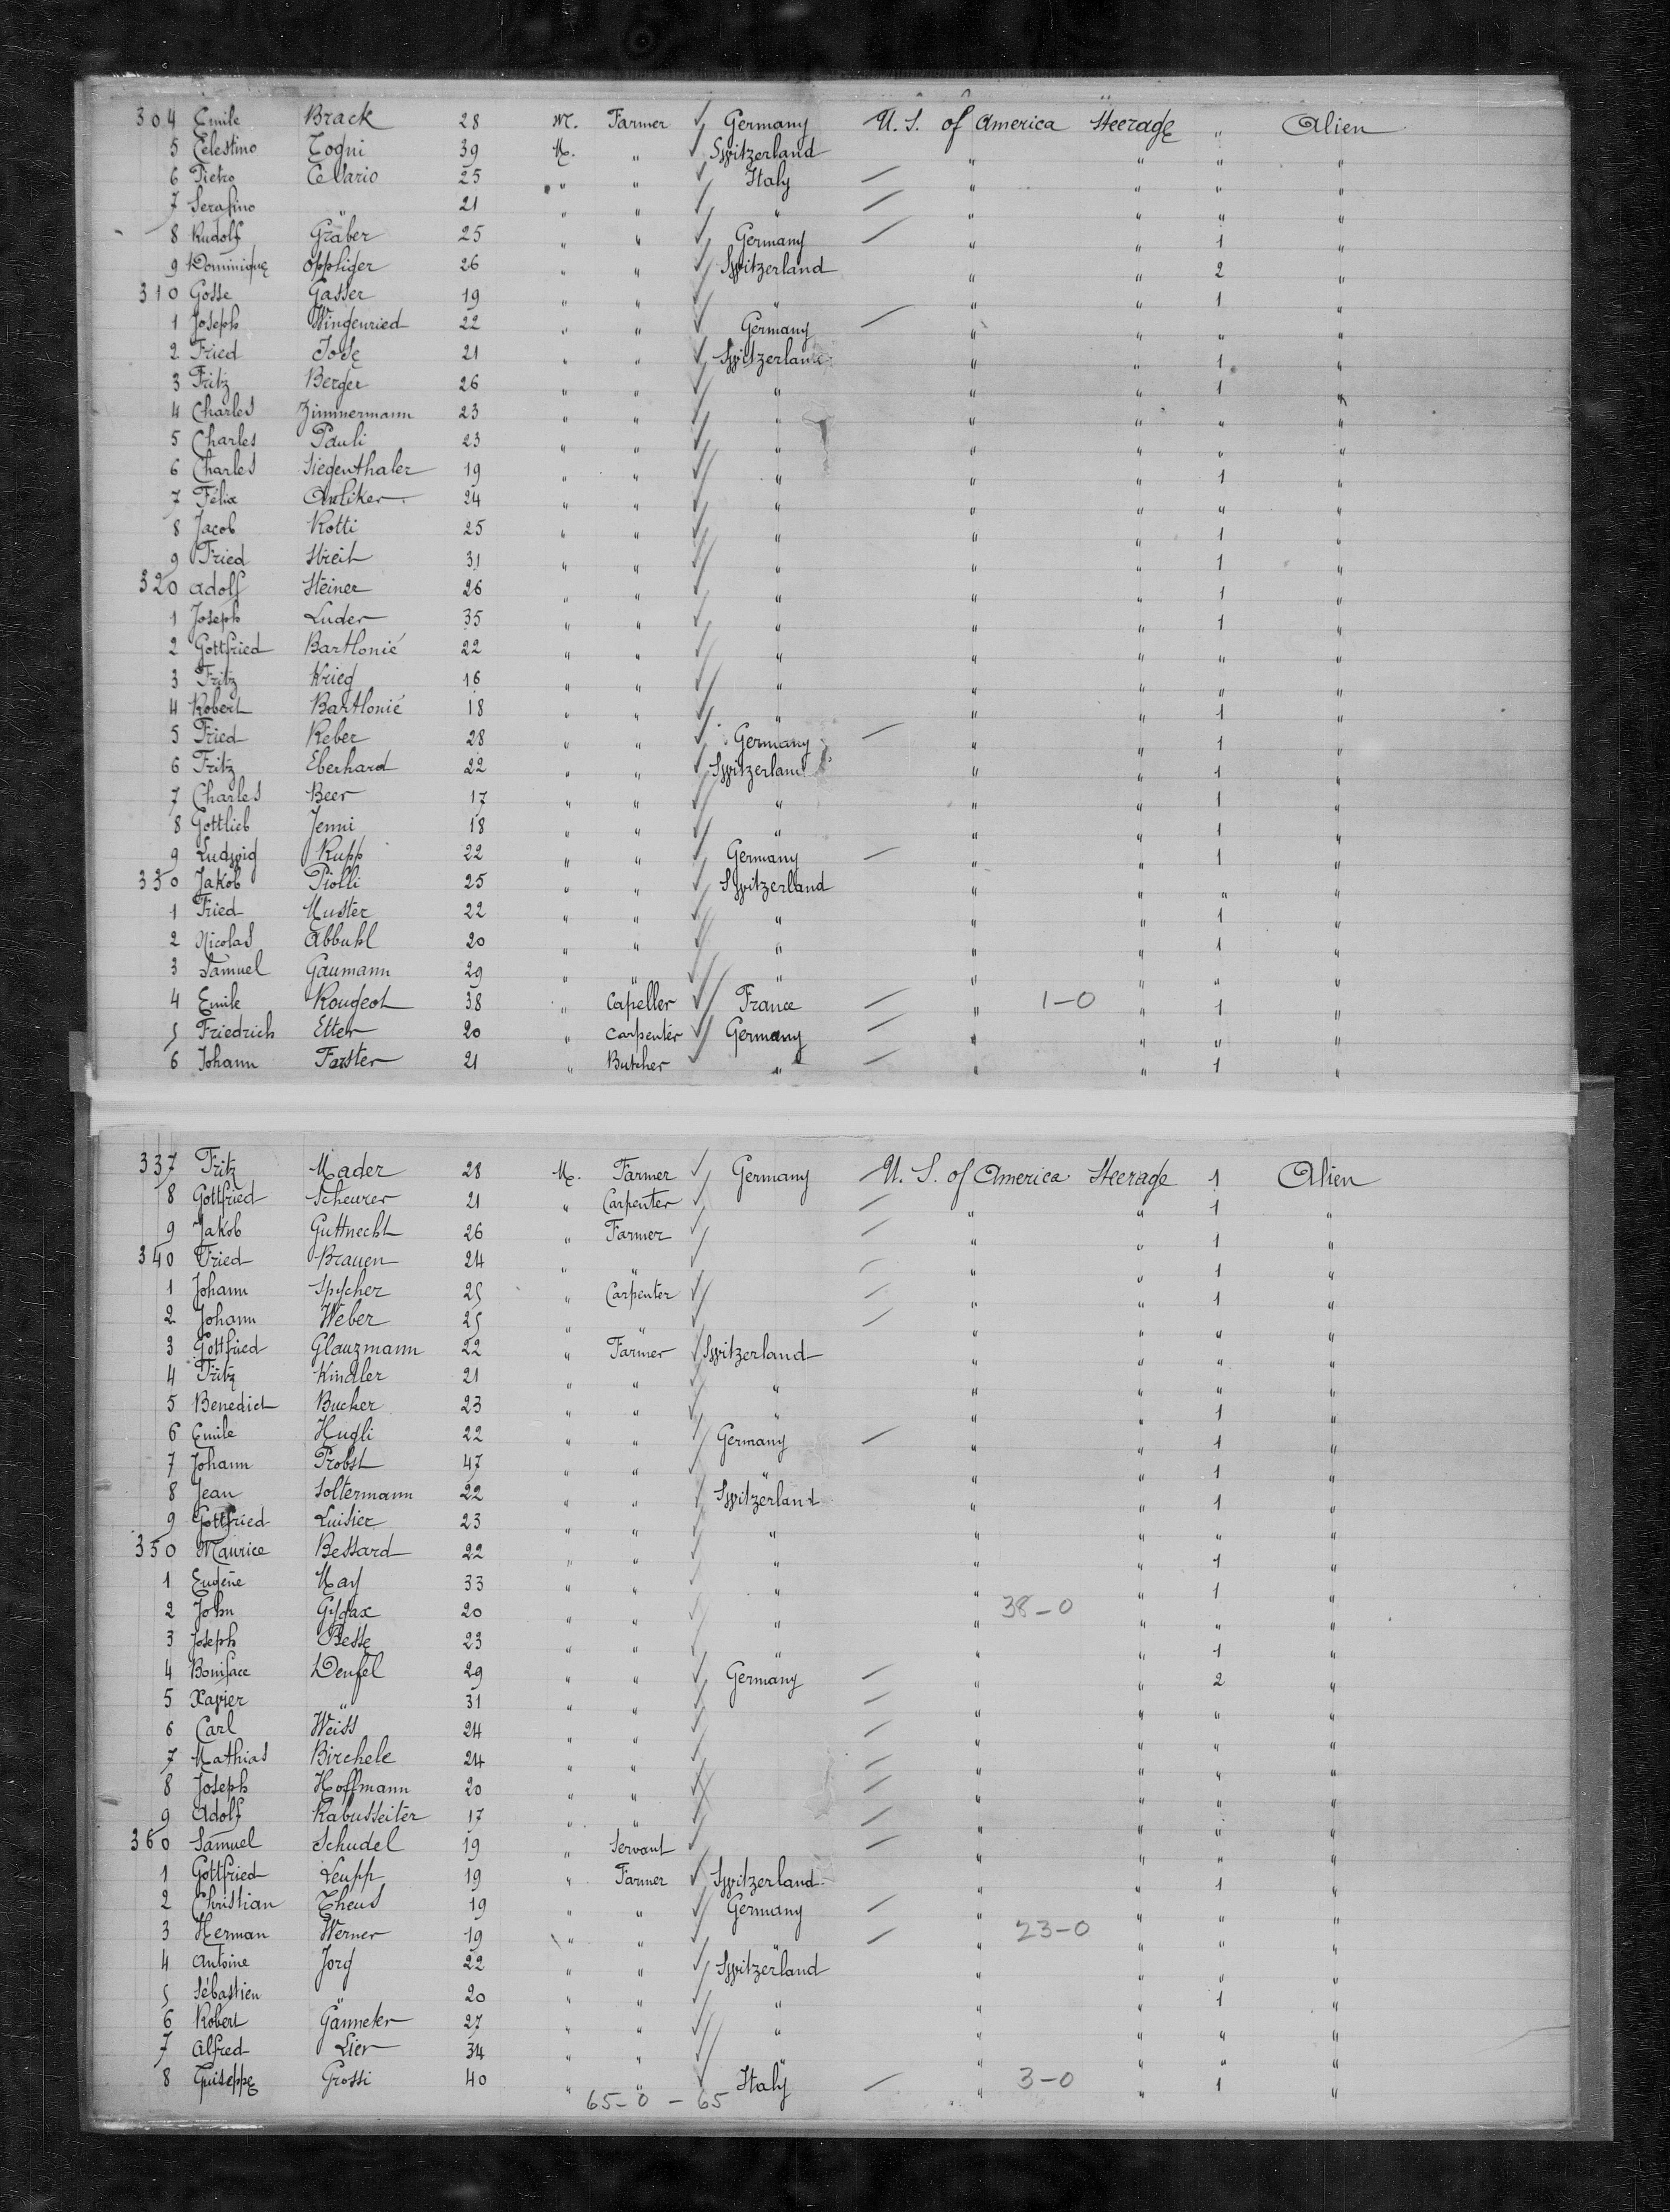 304 Emile Brack 28 M. Farmer Germany U. S. of America Steerage " Alien
5 Celestino Togni 39 M. " Switzerland " " " "
6 Pietro Cellario 25 " " Italy " " " "
7 Serafino " 21 " " " " " " "
8 Rudolf Gräber 25 " " Germany " " 1 "
9 Dominique Oppliger 26 " " Switzerland " " 2 "
310 Gosse Gasser 19 " " " " " 1 "
1 Joseph Wingenried 22 " " Germany " " " "
2 Fried Jose 21 " " Switzerland " " 1 "
3 Fritz Berger 26 " " " " " 1 "
4 Charles Zimmermann 23 " " " " " " "
5 Charles Pauli 23 " " " " " " "
6 Charles Siegenthaler 19 " " " " " 1 "
7 Félix Anliker 24 " " " " " " "
8 Jacob Rotti 25 " " " " " 1 "
9 Fried Streit 31 " " " " " 1 "
320 Adolf Steiner 26 " " " " " 1 "
1 Joseph Luder 35 " " " " " 1 "
2 Gottfried Bartlonié 22 " " " " " " "
3 Fritz Krieg 16 " " " " " " "
4 Robert Bartlonié 18 " " " " " 1 "
5 Fried Reber 28 " " Germany " " 1 "
6 Fritz Eberhard 22 " " Switzerland " " 1 "
7 Charles Beer 17 " " " " " 1 "
8 Gottlieb Jenni 18 " " " " " 1 "
9 Ludwig Rupp 22 " " Germany " " 1 "
330 Jakob Piolli 25 " " Switzerland " " " "
1 Fried Muster 22 " " " " " 1 "
2 Nicolas Abbuhl 20 " " " " " 1 "
3 Samuel Gaumann 29 " " " " " " "
4 Emile Rougeot 38 " Capeller France " 1-0 " 1 "
5 Friedrich Etter 20 " Carpenter Germany " " " "
6 Johann Forster 21 " Butcher " " " 1 "
337 Fritz Mader 28 M. Farmer Germany U. S. of America Steerage 1 Alien
8 Gottfried Scheurer 21 " Carpenter " " 1 "
9 Jakob Guttnecht 26 " Farmer " " 1 "
340 Fried Brauen 24 " " " " 1 "
1 Johann Spycher 25 " Carpenter " " 1 "
2 Johann Weber 25 " " " " " "
3 Gottfried Glauzmann 22 " Farmer Switzerland " " " "
4 Fritz Kindler 21 " " " " " " "
5 Benedict Bucher 23 " " " " " 1 "
6 Emile Hugli 22 " " Germany " " 1 "
7 Johann Probst 47 " " " " " 1 "
8 Jean Soltermann 22 " " Switzerland " " 1 "
9 Gottfried Luisier 23 " " " " " " "
350 Maurice Bessard 22 " " " " " 1 "
1 Eugène May 33 " " " " " 1 "
2 John Gygax 20 " " " " 38-0 " " "
3 Joseph Besse 23 " " " " " 1 "
4 Boniface Denfel 29 " " Germany " " 2 "
5 Xavier " 31 " " " " " "
6 Carl Weiss 24 " " " " " "
7 Mathias Birchele 24 " " " " " "
8 Joseph Hoffmann 20 " " " " " "
9 Adolf Rabusseiter 17 " " " " " "
360 Samuel Schudel 19 " Servant " " " "
1 Gottfried Leupp 19 " Farmer Switzerland " " 1 "
2 Christian Theus 19 " " Germany " " " "
3 Herman Werner 19 " " " 23-0 " " "
4 Antoine Jorg 22 " " Switzerland " " " "
5 Sébastien " 20 " " " " " 1 "
6 Robert Gänneter 27 " " " " " " "
7 Alfred Lier 34 " " " " " " "
8 Guiseppe Grossi 40 " " Italy " 3-0 " 1 "
65-0 - 65